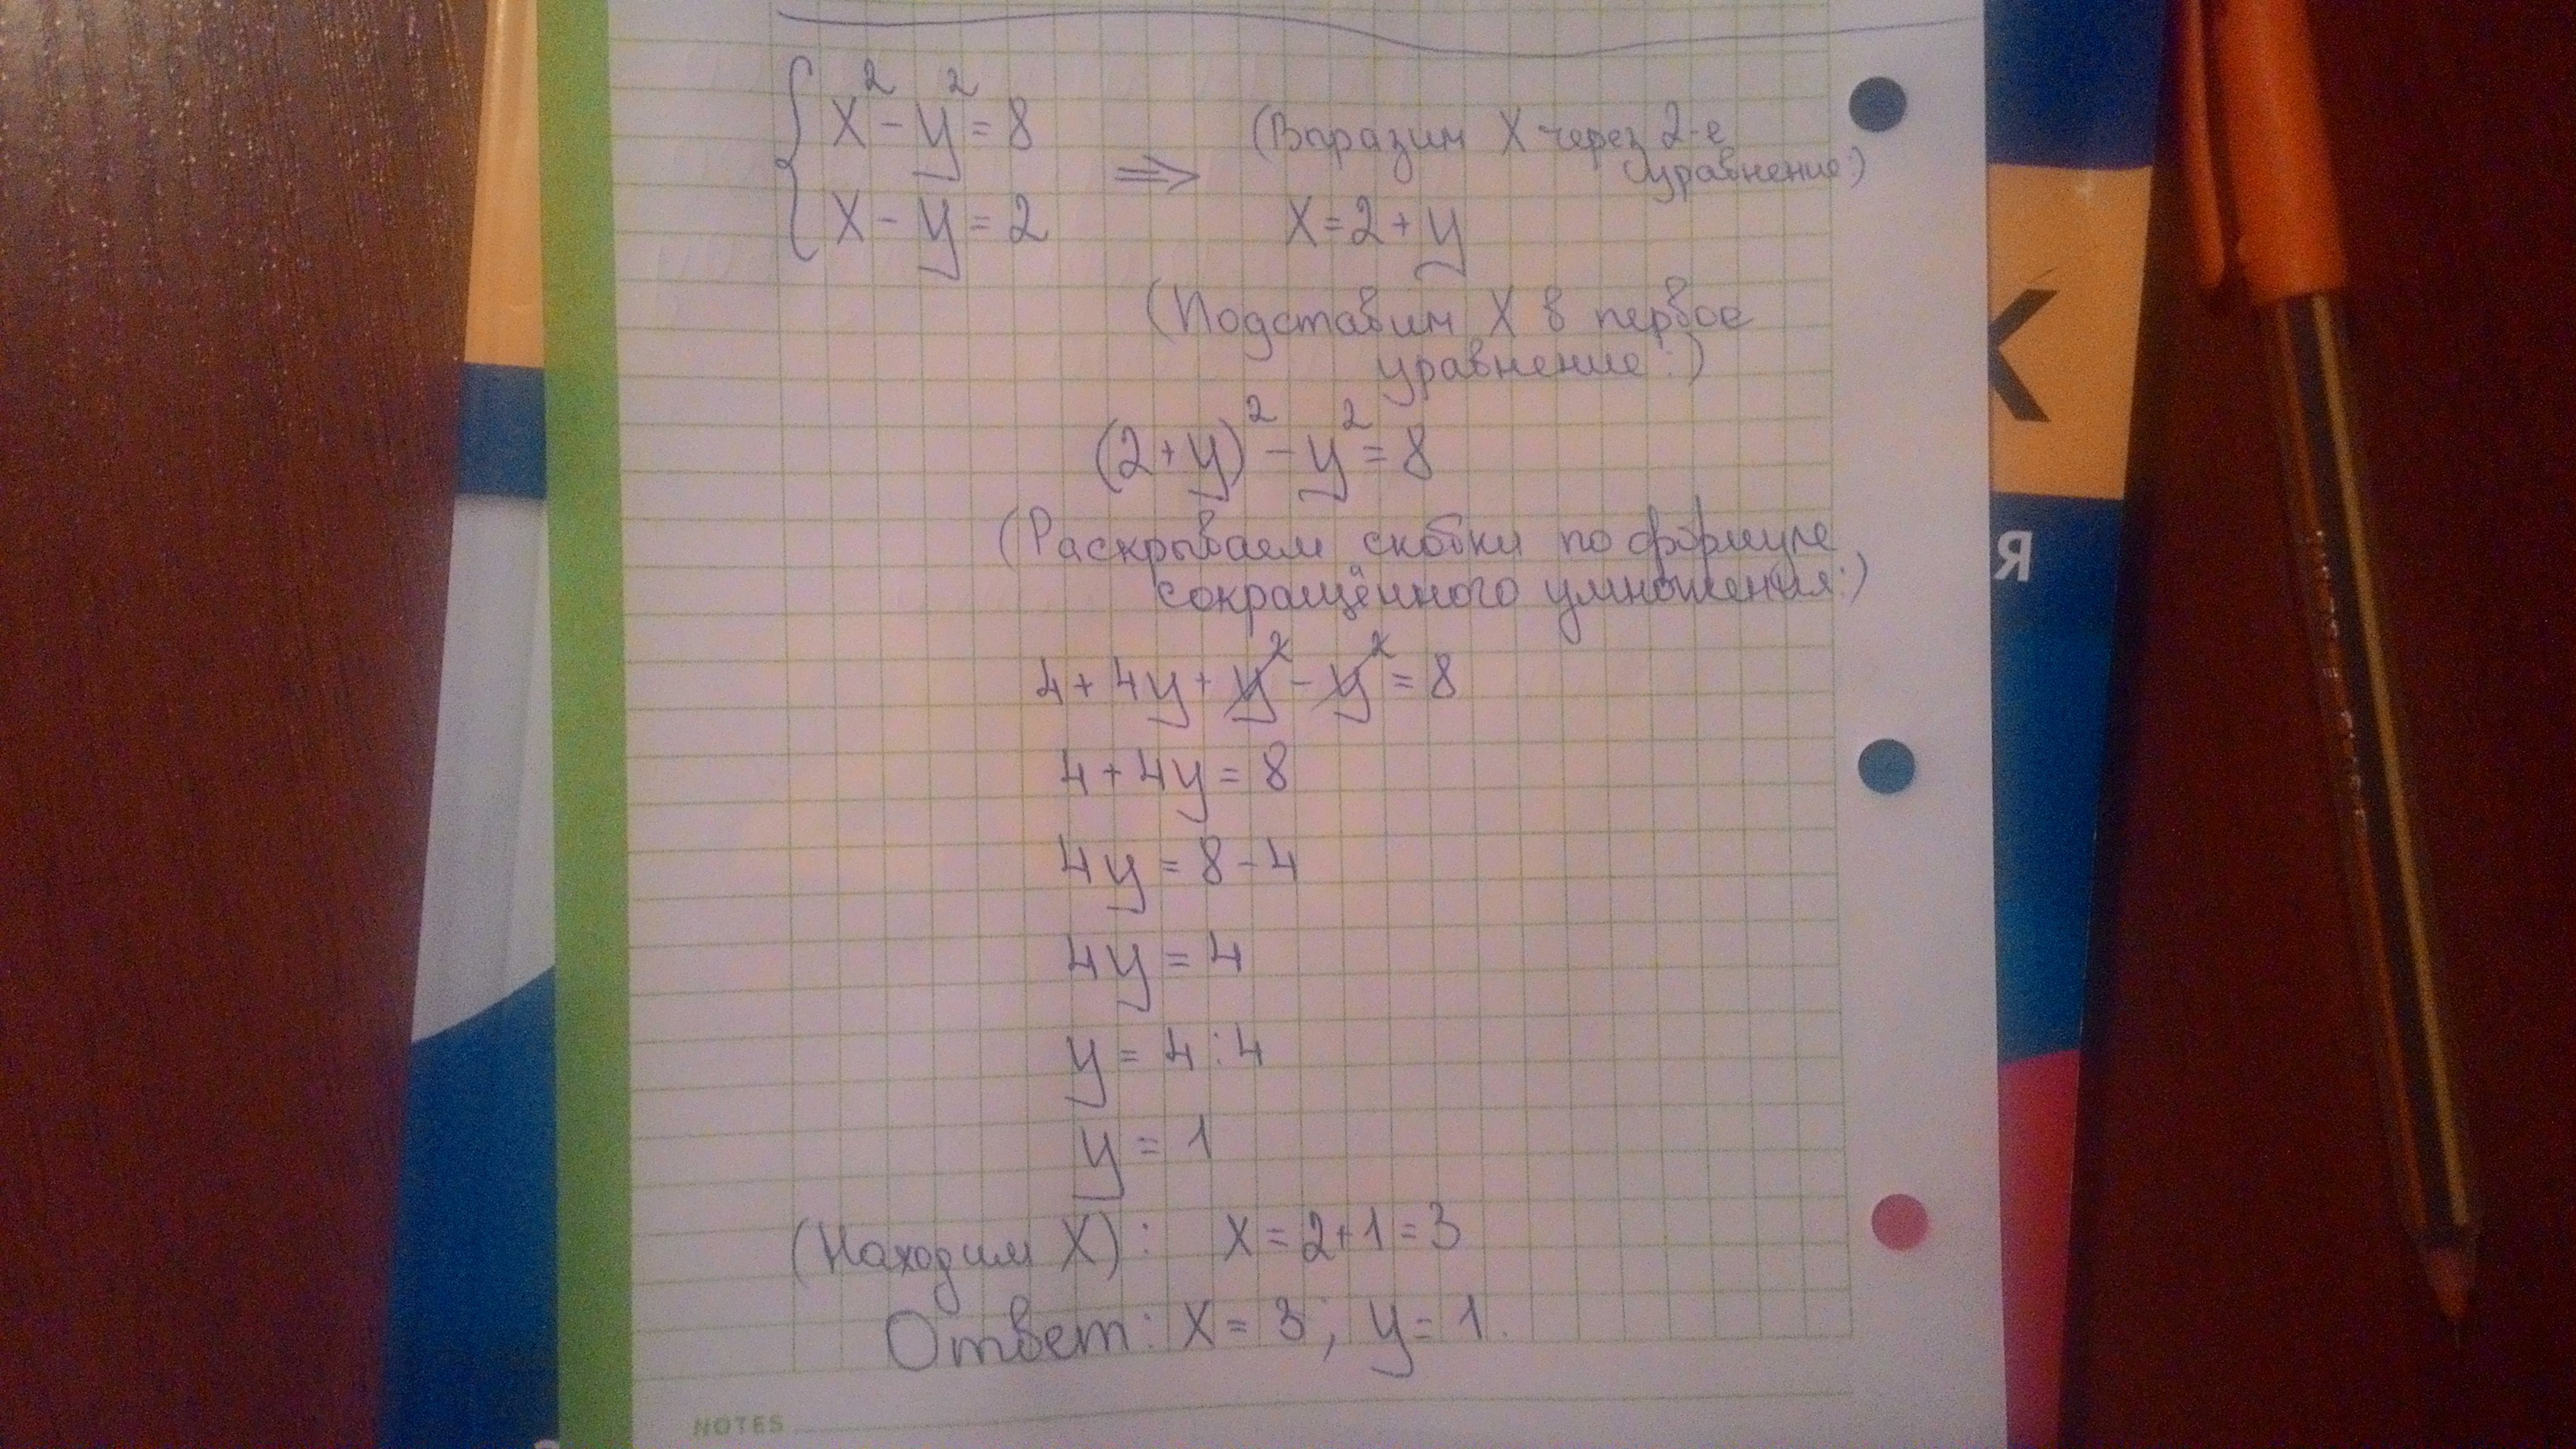 { x² - y² = 8
x - y = 2
⇒
(Выразим X через 2-е
уравнение:)
x = 2 + y
(Подставим X в первое
уравнение:)
(2 + y)² - y² = 8
(Раскрываем скобки по формуле
сокращённого умножения:)
4 + 4y + y² - y² = 8
4 + 4y = 8
4y = 8 - 4
4y = 4
y = 4 : 4
y = 1
(Находим X): x = 2 + 1 = 3
Ответ: x = 3; y = 1.
NOTES
К
Я